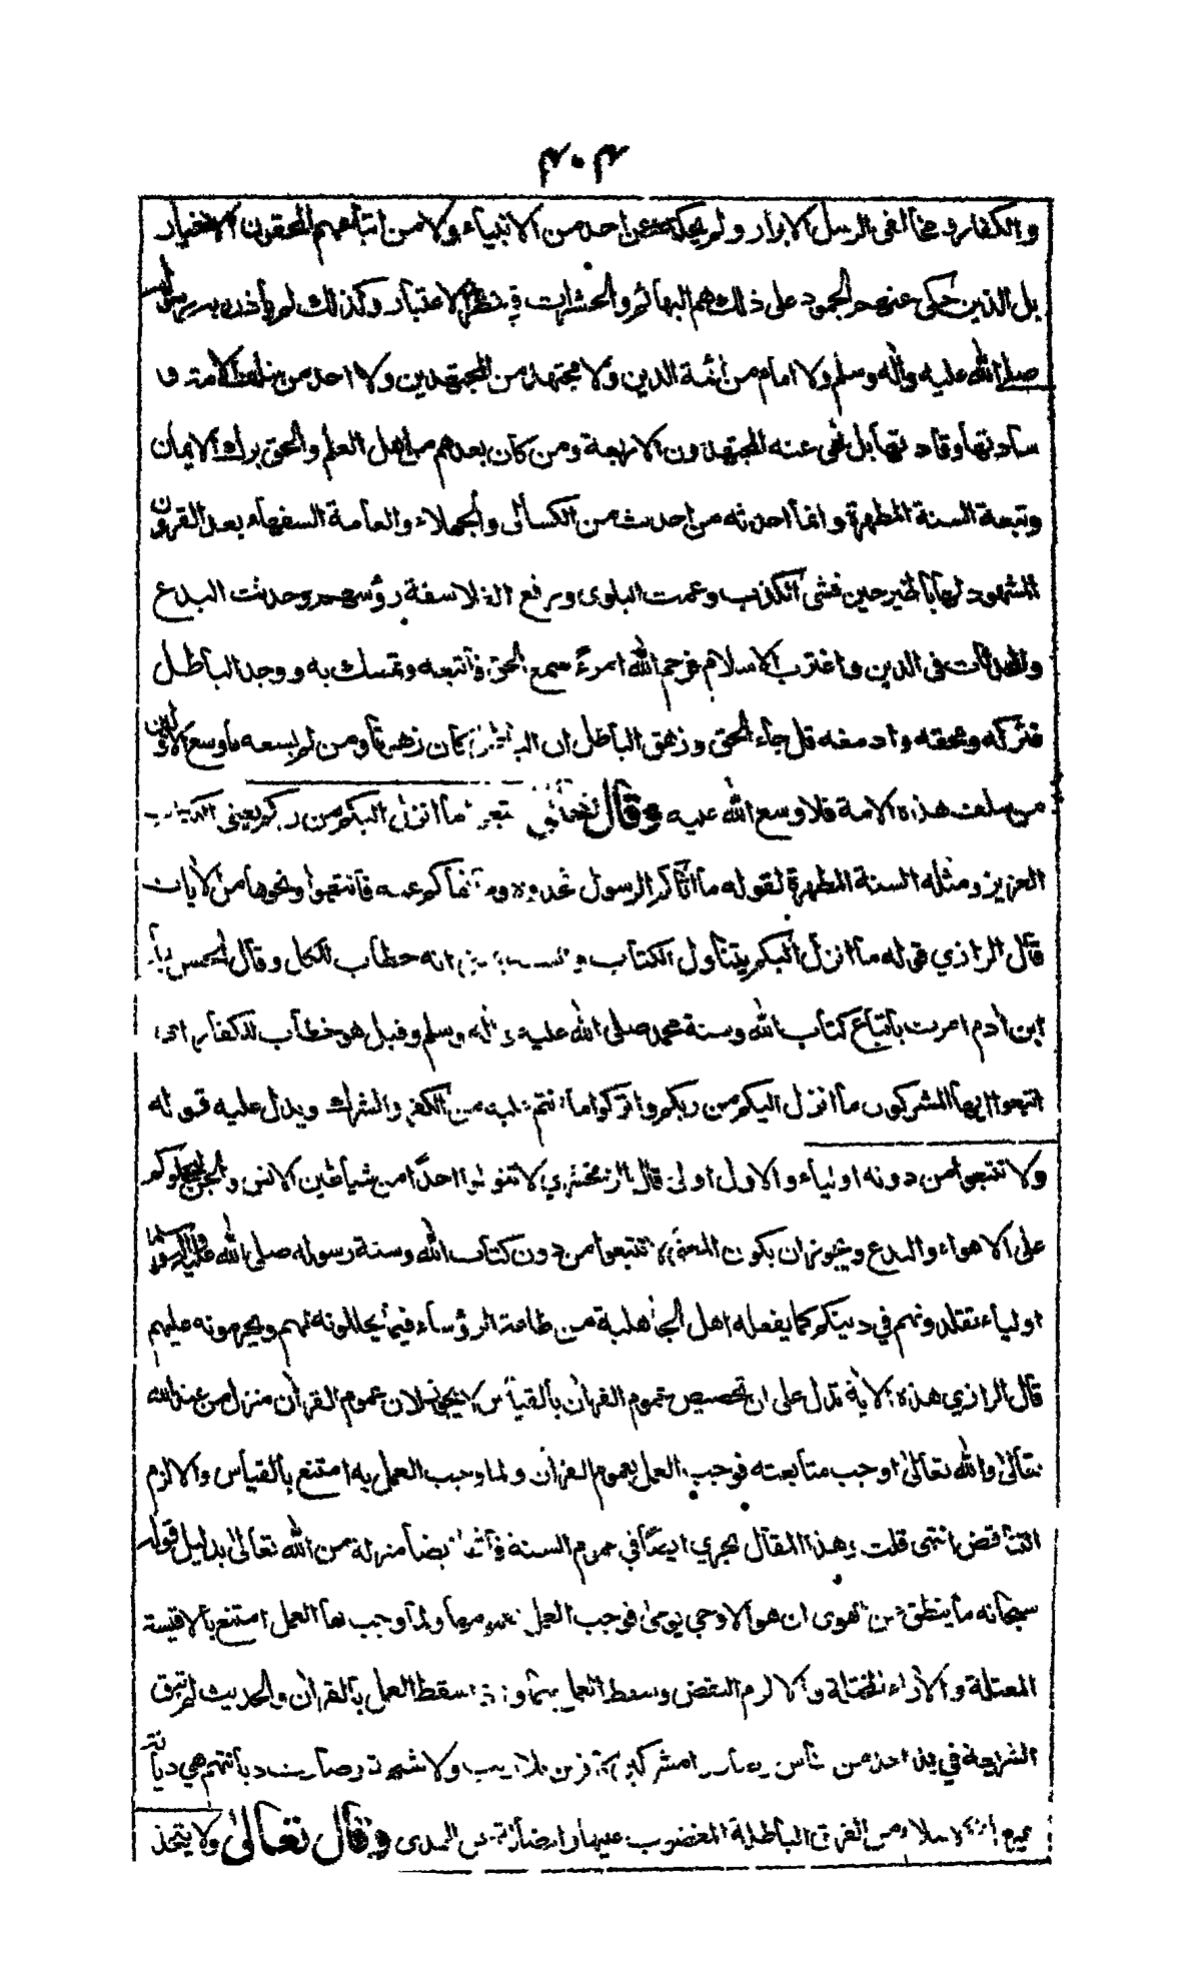 ٤٠٤
والكفار ومخالفى الرسل الابرار ولم يحكه عن احد من الانبياء ولا من اتباعهم المحقون الاخيار
بل الذين حكى عنهم الجمود على ذلك هم البهائم والحشرات فى نظر الاعتبار وكذلك لم يأذن به رسول الله
صلى الله عليه واله وسلم ولا امام من أئمة الدين ولا مجتهد من المجتهدين ولا احد من سلف الامة و
سادتها وقادتها بل نهى عنه المجتهدون الاربعة ومن كان بعدهم من اهل العلم والحق الايمان
وتبعة السنة المطهرة وانما احدثه من احدث من الكسالى والجهلاء والعامة السفهاء بعد القرون
المشهود لها بالخير حين فشى الكذب وعمت البلوى ورفع الفلاسفة رؤسهم وحدثت البدع
والمحدثات فى الدين واغترب الاسلام فرحم الله امرءً سمع الحق فاتبعه وتمسك به ووجد الباطل
فتركه ومحقه وادمغه قل جاء الحق وزهق الباطل ان الباطل كان زهوقا ومن لم يسعه ما وسع الاولين
من سلف هذه الامة فلا وسع الله عليه وقال تعالى ما انزل اليكم من ربكم يعنى الكتاب
العزيز ومثله السنة المطهرة لقوله ما اتاكم الرسول فخذوه وما نهاكم عنه فانتهوا ونحوها من الأيات
قال الرازي قوله ما انزل اليكم يتناول الكتاب انه خطاب للكل وقال الحسن يا
ابن أدم امرت باتباع كتاب الله وسنة محمد صلى الله عليه واله وسلم وقيل هو خطاب للكفار اى
اتبعوا ايها المشركون ما انزل اليكم من ربكم واتركوا ما انتم عليه من الكفر والشرك ويدل عليه قوله
ولا تتبعوا من دونه اولياء والاول اولى قال الزمخشري لا تتولوا احدًا من شياطين الانس والجن
على الاهواء والبدع ويجوز ان يكون المعنى لا تتبعوا من دون كتاب الله وسنة رسوله صلى الله عليه واله وسلم
اولياء تقلدونهم في دينكم كما يفعله اهل الجاهلية من طاعة الرؤساء فيما يحللونه لهم ويحرمونه عليهم
قال الرازي هذه الأية تدل على ان تخصيص عموم القرأن بالقياس لا يجوز لان عموم القرأن منزل من عند الله
تعالىٰ والله تعالىٰ اوجب متابعته فوجب العمل بعموم القرأن ولما وجب العمل به امتنع بالقياس والا لزم
التناقض انتهى قلت وهذا المقال يجري ايضًا في عموم السنة فأنها ايضا منزلة من الله تعالىٰ بدليل قوله
سبحانه ما ينطق عن الهوى ان هو الا وحي يوحىٰ فوجب العمل بعمومها ولما وجب بها العمل امتنع بالاقيسة
المعتلة والأراء المختلة والا لزم النقض وسقط العمل بهما واذا سقط العمل بالقرأن والحديث لم تبق
الشريعة في يد احد من الناس بلا ريب ولا شبهة وصارت ديانتهم هي ديانة
من الفرق الباطلة المغضوب عليها والضالة عن الهدى وقال تعالىٰ ولا يتخذ